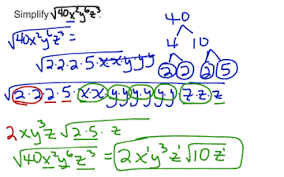 Simplify √40x²y⁶z³.
√40x²y⁶z³ =
40
4 10
2 2 2 5
√2·2·2·5·x·x y·y·y
√2·2·2·5·x·x y·y·y·y·y·y z·z·z
2xy³z√2·5·z
√40x²y⁶z³ = 2x¹y³z¹√10z¹